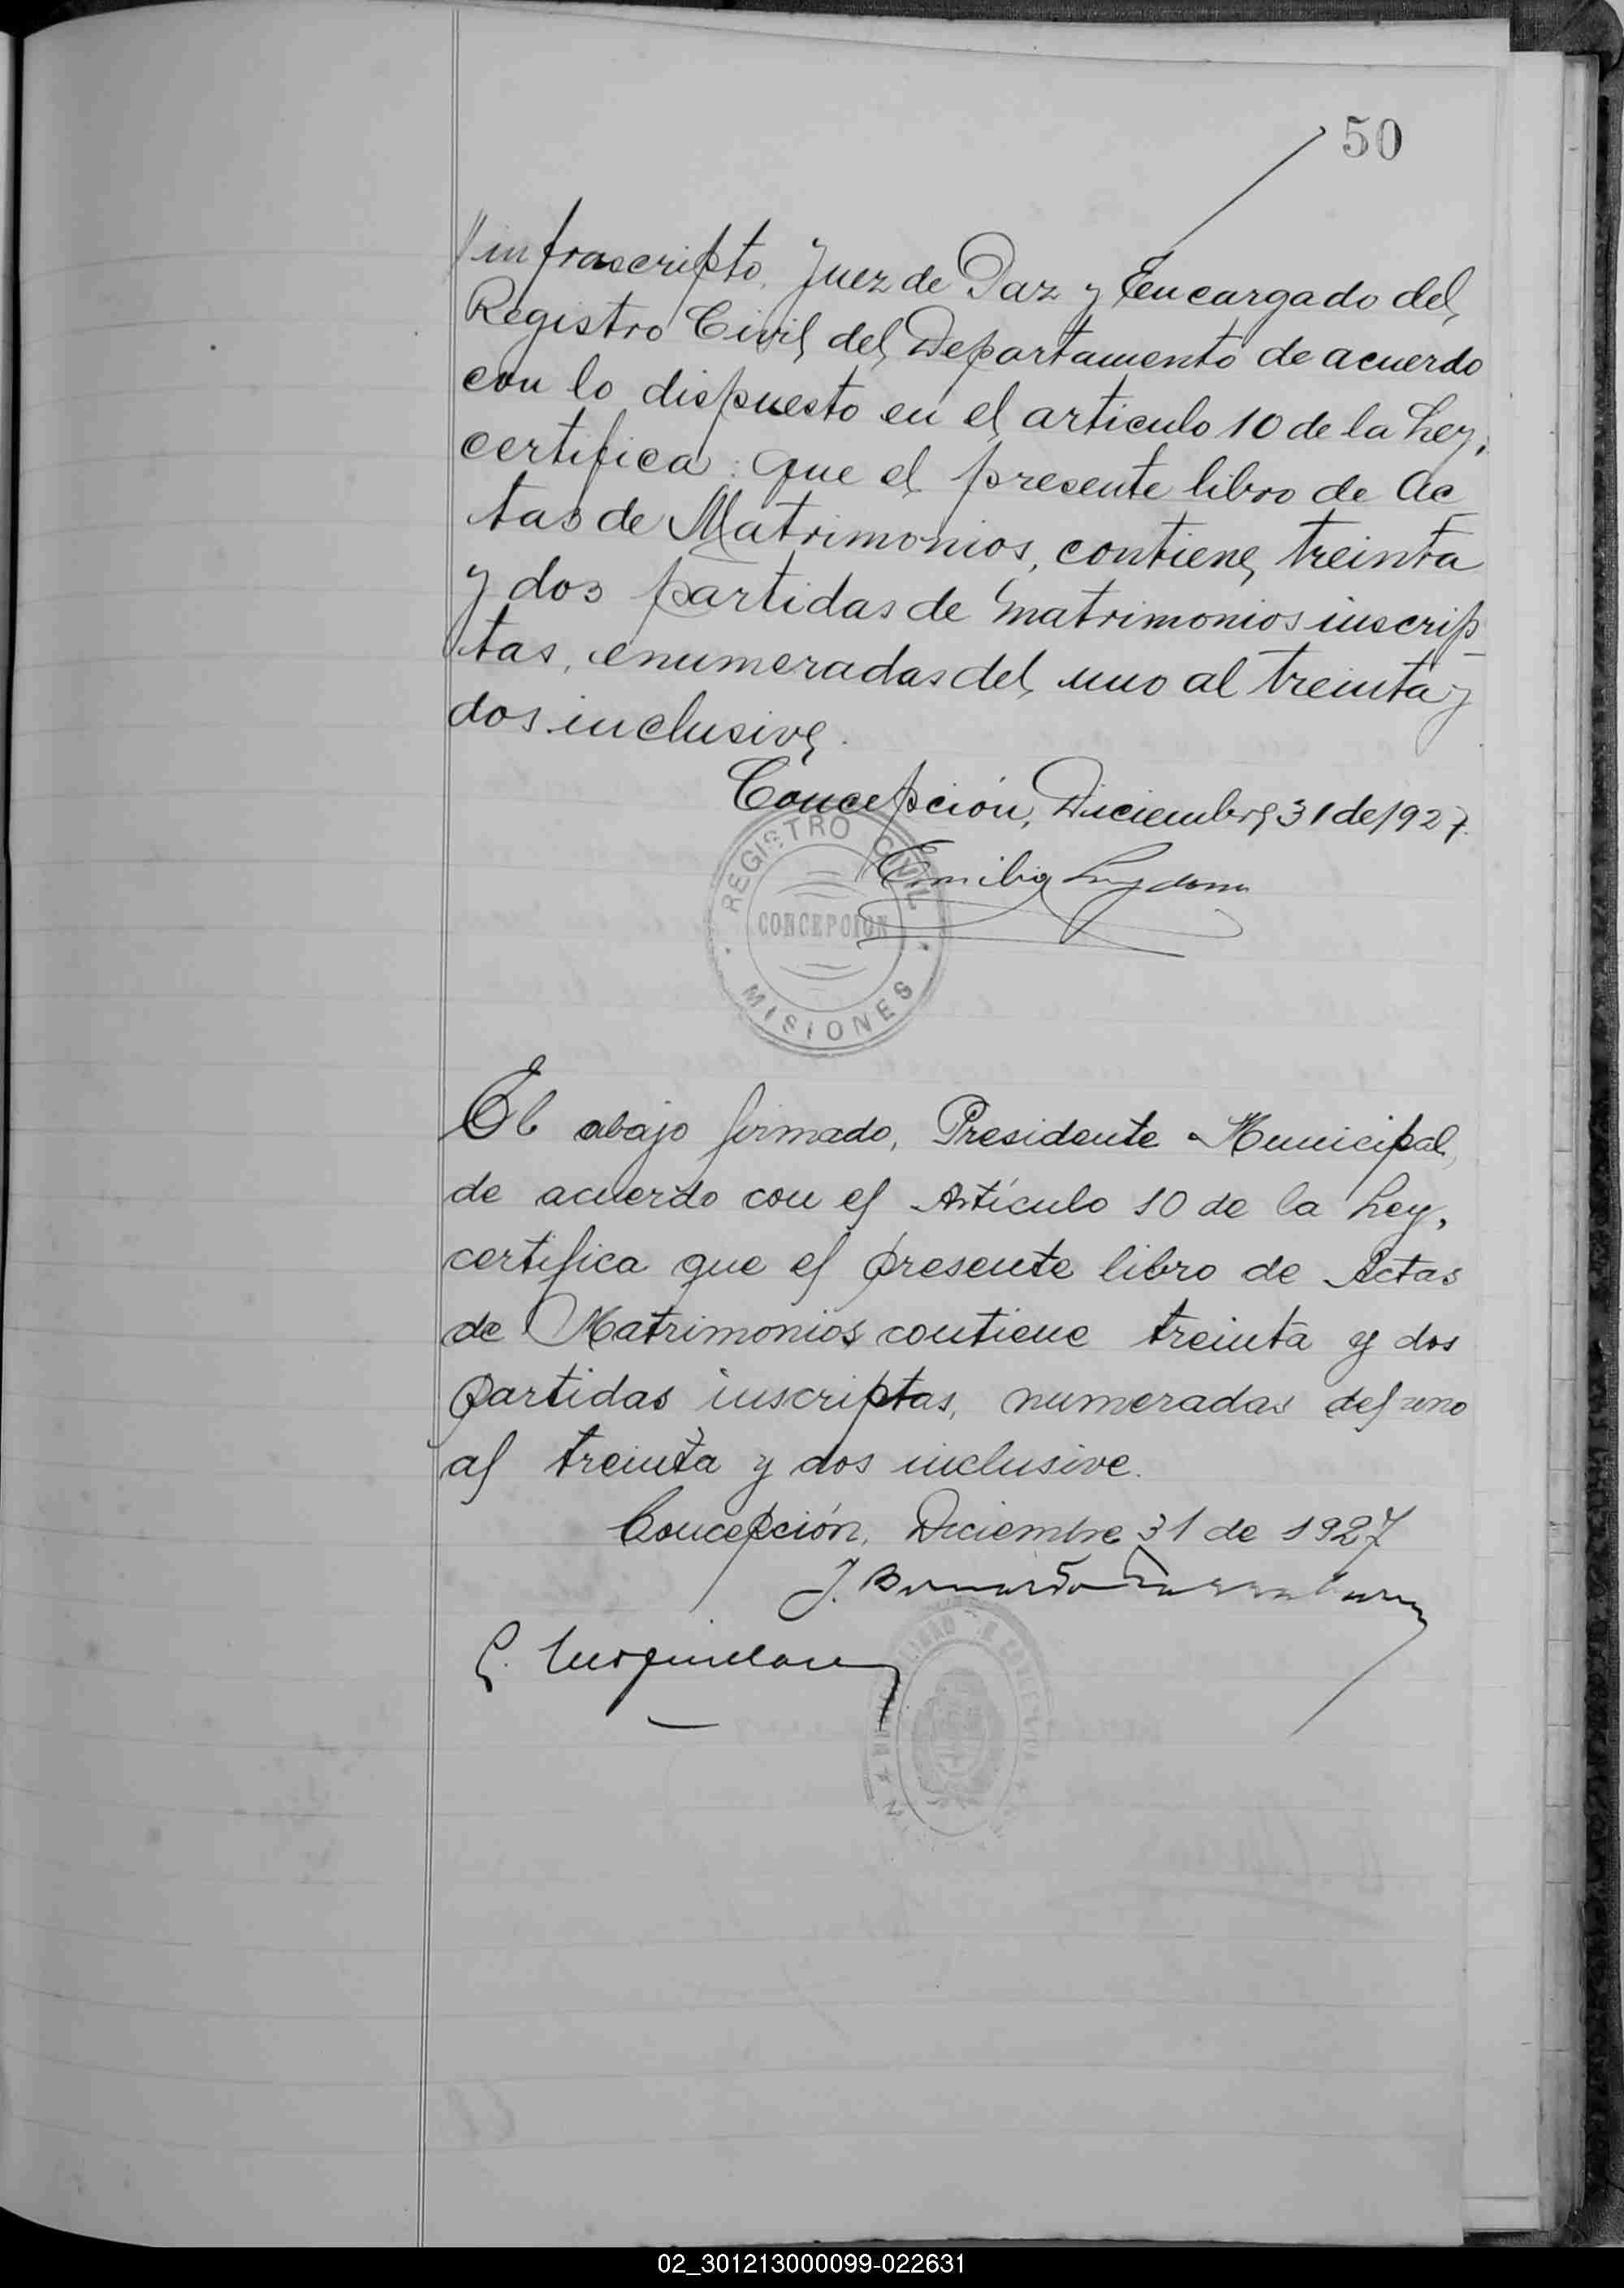 50
//infrascripto, Juez de Paz y Encargado del
Registro Civil del Departamento de acuerdo
con lo dispuesto en el articulo 10 de la Ley,
certifica: que el presente libro de Ac
tas de Matrimonios, contiene treinta
y dos partidas de matrimonios inscrip
tas, enumeradas del uno al treinta y
dos inclusive.
Concepción, Diciembre 31 de 1927.
Emilio
REGISTRO CIVIL
CONCEPCION
MISIONES
El abajo firmado, Presidente Municipal,
de acuerdo con el Artículo 10 de la Ley,
certifica que el presente libro de Actas
de Matrimonios contiene treinta y dos
partidas inscriptas, numeradas del uno
al treinta y dos inclusive.
Concepción, Diciembre 31 de 1927
J. Bernardo
02_301213000099-022631